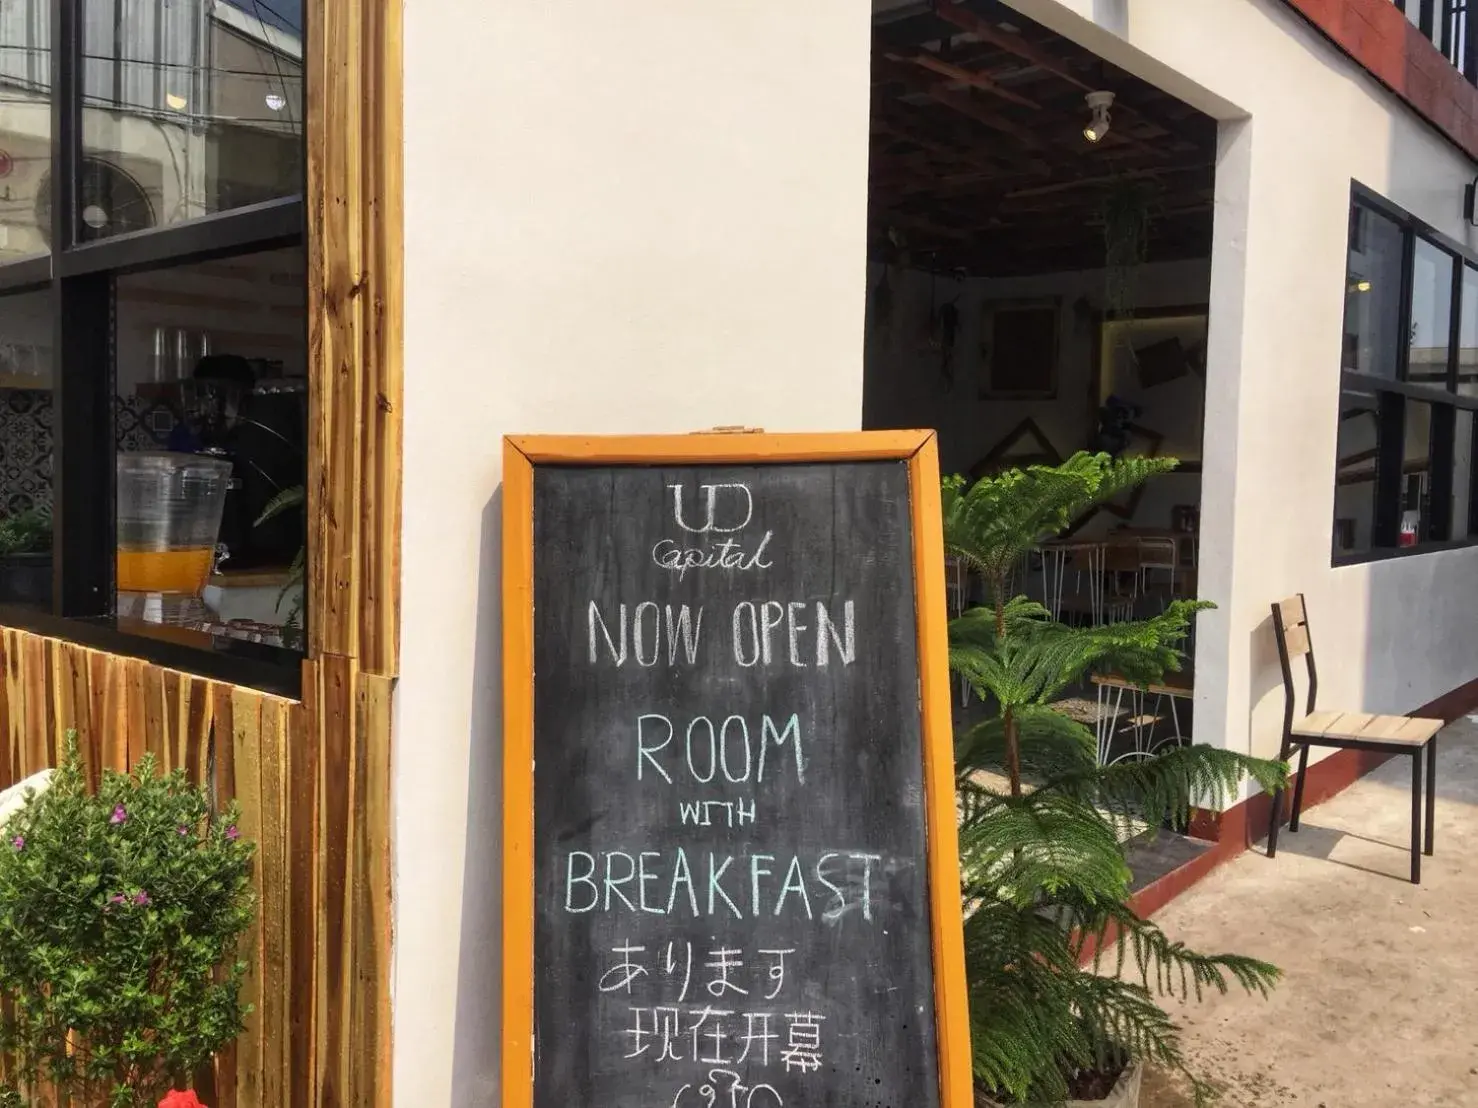 UD
Capital
NOW OPEN
ROOM
WITH
BREAKFAST
あります
现在开幕